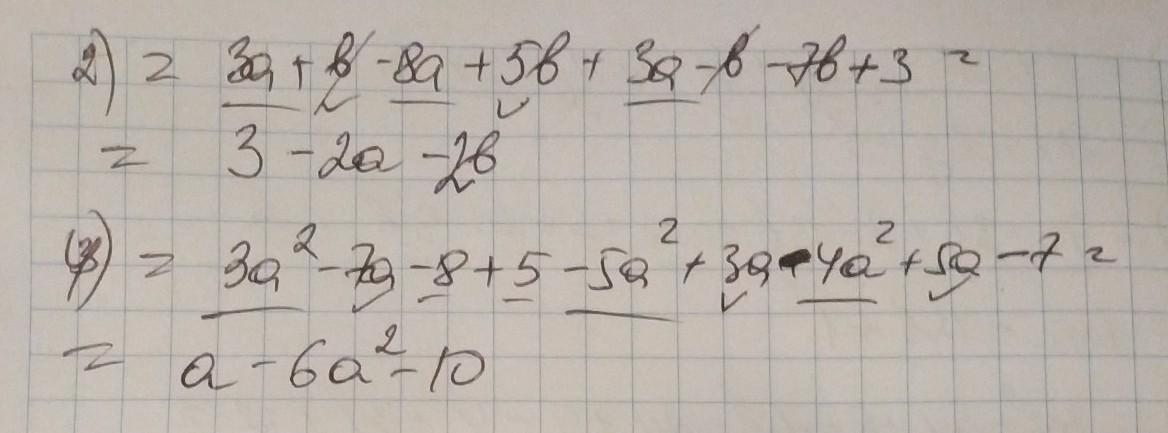 2) = 3a + b - 8a + 5b + 3a - b - 7b + 3 =
= 3 - 2a - 2b
4) = 3a² - 7a - 8 + 5 - 5a² + 3a - 4a² + 5a - 7 =
= a - 6a² - 10